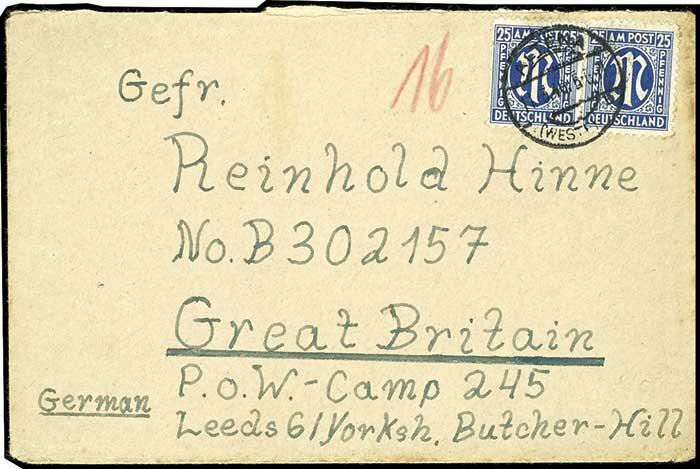 16
25 AM POST 25
PFENNIG
PFENNIG
DEUTSCHLAND
25 AM POST 25
PFENNIG
PFENNIG
DEUTSCHLAND
(WESTF)
Gefr.
Reinhold Hinne
No. B 302157
Great Britain
P.o.W.-Camp 245
German
Leeds 6/Yorksh. Butcher-Hill